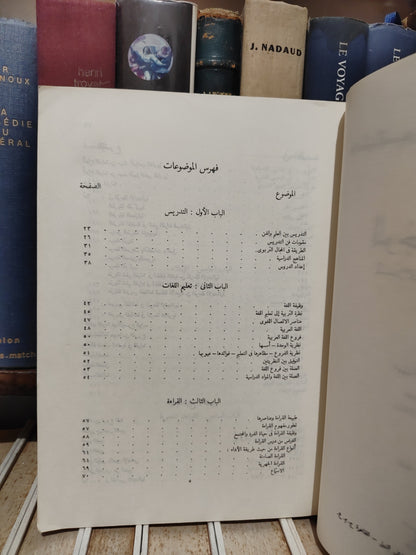 J. NADAUD
LE VOYAG
LE
henri
troyat
فهرس الموضوعات
الموضوع
الصفحة
الباب الأول : التدريس
التدريس بين العلم والفن ٢٣
مقومات فن التدريس ٣١
الطريقة فى المجال التربوى ٣٥
المناهج الدراسية
إعداد الدروس ٣٨
الباب الثانى : تعليم اللغات
وظيفة اللغة ٤٣
نظرة التربية إلى تعليم اللغة ٤٥
عناصر الاتصال اللغوى ٤٧
اللغة العربية ٤٨
فروع اللغة العربية ٥٠
نظرية الوحدة - أسسها ٥١
نظرية الفروع - مظاهرها فى التعليم - فوائدها - عيوبها ٥٢
التوفيق بين النظريتين ٥٢
الصلة بين فروع اللغة ٥٤
الصلة بين اللغة والمواد الدراسية ٥٤
الباب الثالث : القراءة
طبيعة القراءة وعناصرها ٥٧
تطور مفهوم القراءة ٥٧
وظيفة القراءة فى حياة الفرد والمجتمع ٥٨
الغرض من درس القراءة ٥٩
أنواع القراءة من حيث طريقة الأداء : ٦١
القراءة الصامتة ٦١
القراءة الجهرية ٦٩
الاستماع ٧٠